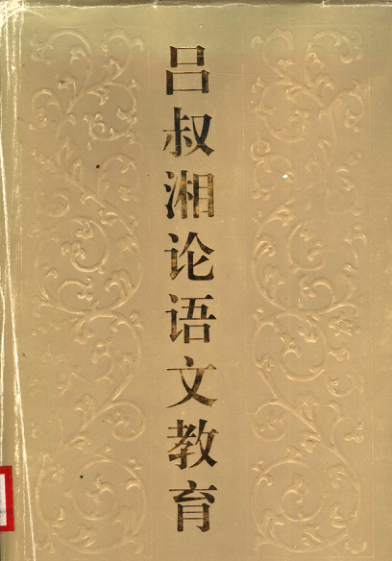 吕叔湘论语文教育